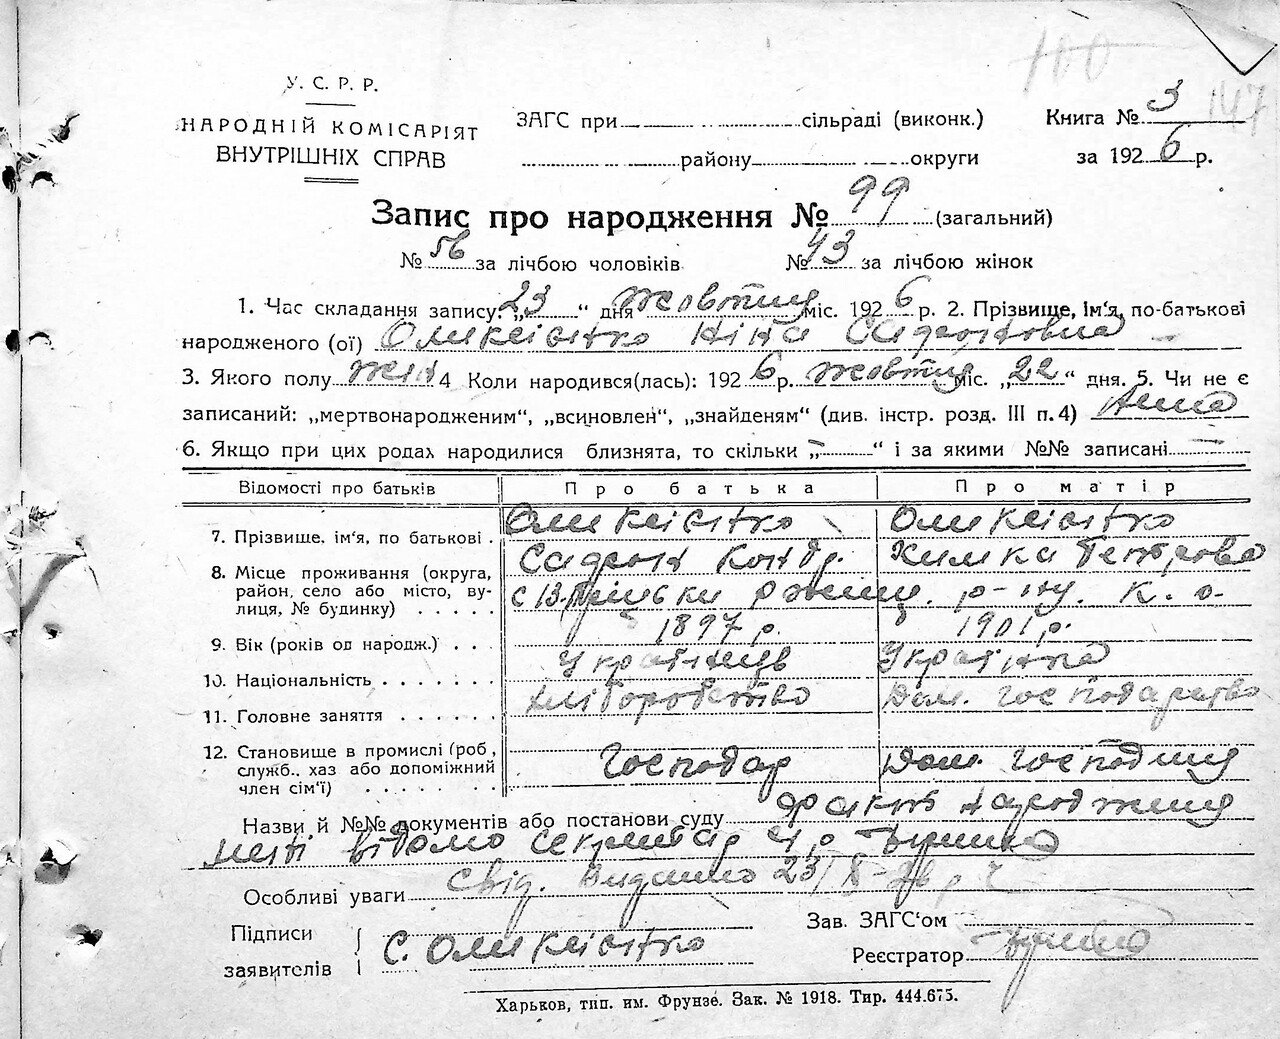 100
147
У. С. Р. Р.
НАРОДНІЙ КОМІСАРІЯТ
ВНУТРІШНІХ СПРАВ
ЗАГС при сільраді (виконк.)
району округи
Книга № 3
за 1926 р.
Запис про народження № 99 (загальний)
№ 56 за лічбою чоловіків № 43 за лічбою жінок
1. Час складання запису: „23“ дня Жовтня міс. 1926 р. 2. Прізвище, ім‘я, по-батькові
народженого (ої) Олик Ніна
3. Якого полу жін 4 Коли народився(лась): 1926 р. жовтня міс. „22“ дня. 5. Чи не є
записаний: „мертвонародженим“, „всиновлен“, „знайденям“ (див. інстр. розд. III п.4)
6. Якщо при цих родах народилися близнята, то скільки „-“ і за якими №№ записані
Відомості про батьків Про батька Про матір
7. Прізвище, ім‘я, по батькові .
Химка Петрова
8. Місце проживання (округа,
район, село або місто, ву-
лиця, № будинку) . . . . с р-ну. К. о.
9. Вік (років од народж.) . . . 1897 р. 1901 р.
10. Національність . . . . . . . Українець Українка
11. Головне заняття . . . . . . хліборобство Дом. господарство
12. Становище в промислі (роб,
служб., хаз або допоміжний
член сім‘ї) . . . . . . Господар Дом. господиня
Назви й №№ документів або постанови суду факт народження
мені відомо секретар
Особливі уваги Свід. Видано 23/X-26 р
Підписи
заявителів С.
Зав. ЗАГС‘ом
Реєстратор
Харьков, тип. им. Фрунзе. Зак. № 1918. Тир. 444.675.